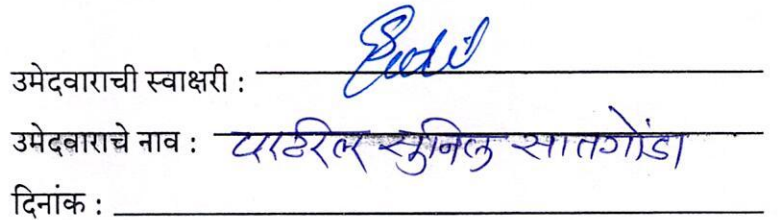 उमेदवाराची स्वाक्षरी :
उमेदवाराचे नाव : पाटील सुनिल सातगोंडा
दिनांक :